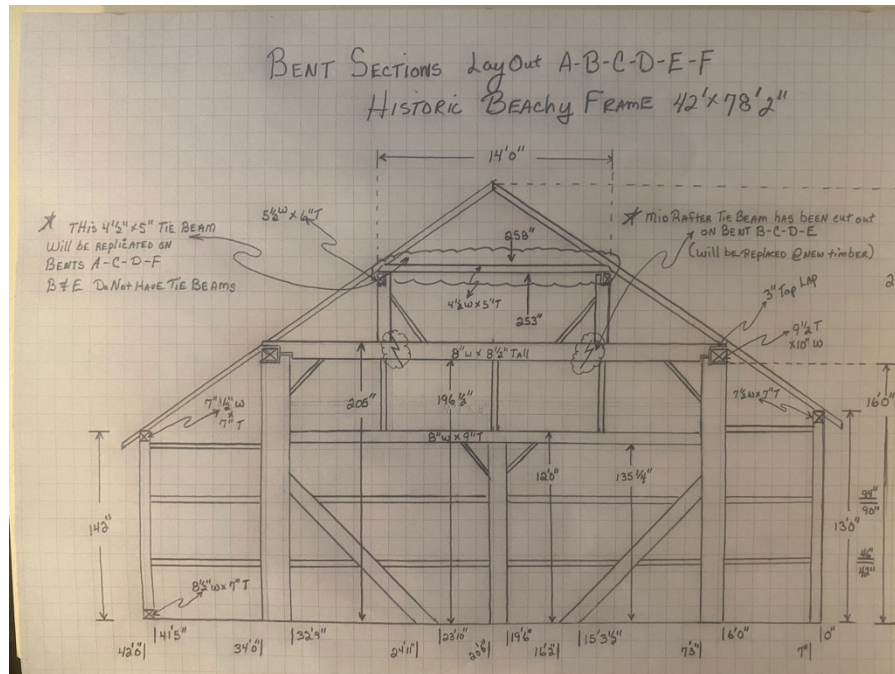 BENT SECTIONS LayOut A-B-C-D-E-F
HISTORIC BEACHY FRAME 42'x78'2"
14'0"
5½"W x 6"T
* THIS 4½" x 5" TIE BEAM
Will be REPLICATED ON
BENTS A-C-D-F
B & E DO NOT HAVE TIE BEAMS
258"
4½"W x 5"T
253"
* MID RAFTER TIE BEAM HAS BEEN CUT OUT
ON BENT B-C-D-E
(will be REPLACED @ NEW timber)
3" TOP LAP
9½T
x10"W
2
8"W x 8½" TALL
205"
196½"
7"½"W
x
7"T
7½W x 7"T
16'0"
8"W x 9"T
12'0"
135¼"
142"
94"
90"
13'0"
46"
42"
8½"W x 7"T
42'0"|
|41'5"
34'0"|
|32'9"
24'11"|
|23'10"
20'6"|
|19'6"
16'2|
|15'3½"
7'3"|
|6'0"
7"|
|0"